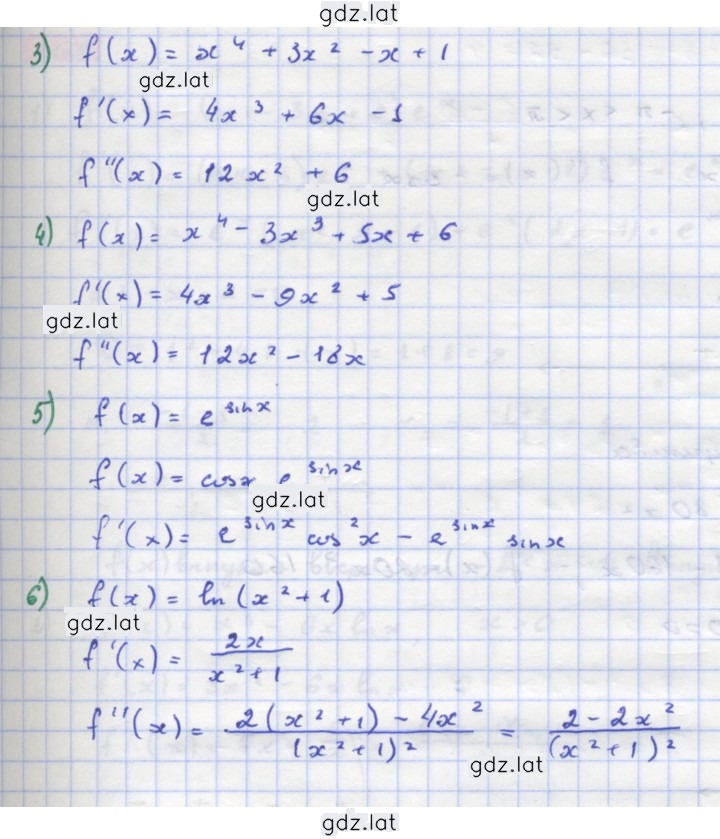 gdz.lat
3) f(x) = x⁴ + 3x² - x + 1
gdz.lat
f'(x) = 4x³ + 6x - 1
f''(x) = 12x² + 6
gdz.lat
4) f(x) = x⁴ - 3x³ + 5x + 6
f'(x) = 4x³ - 9x² + 5
gdz.lat
f''(x) = 12x² - 18x
5) f(x) = e^sinx
f(x) = cosx e^sinx
gdz.lat
f'(x) = e^sinx cos²x - e^sinx sinx
6) f(x) = ln(x² + 1)
gdz.lat
f'(x) = 2x / (x² + 1)
f''(x) = (2(x² + 1) - 4x²) / (x² + 1)² = (2 - 2x²) / (x² + 1)²
gdz.lat
gdz.lat